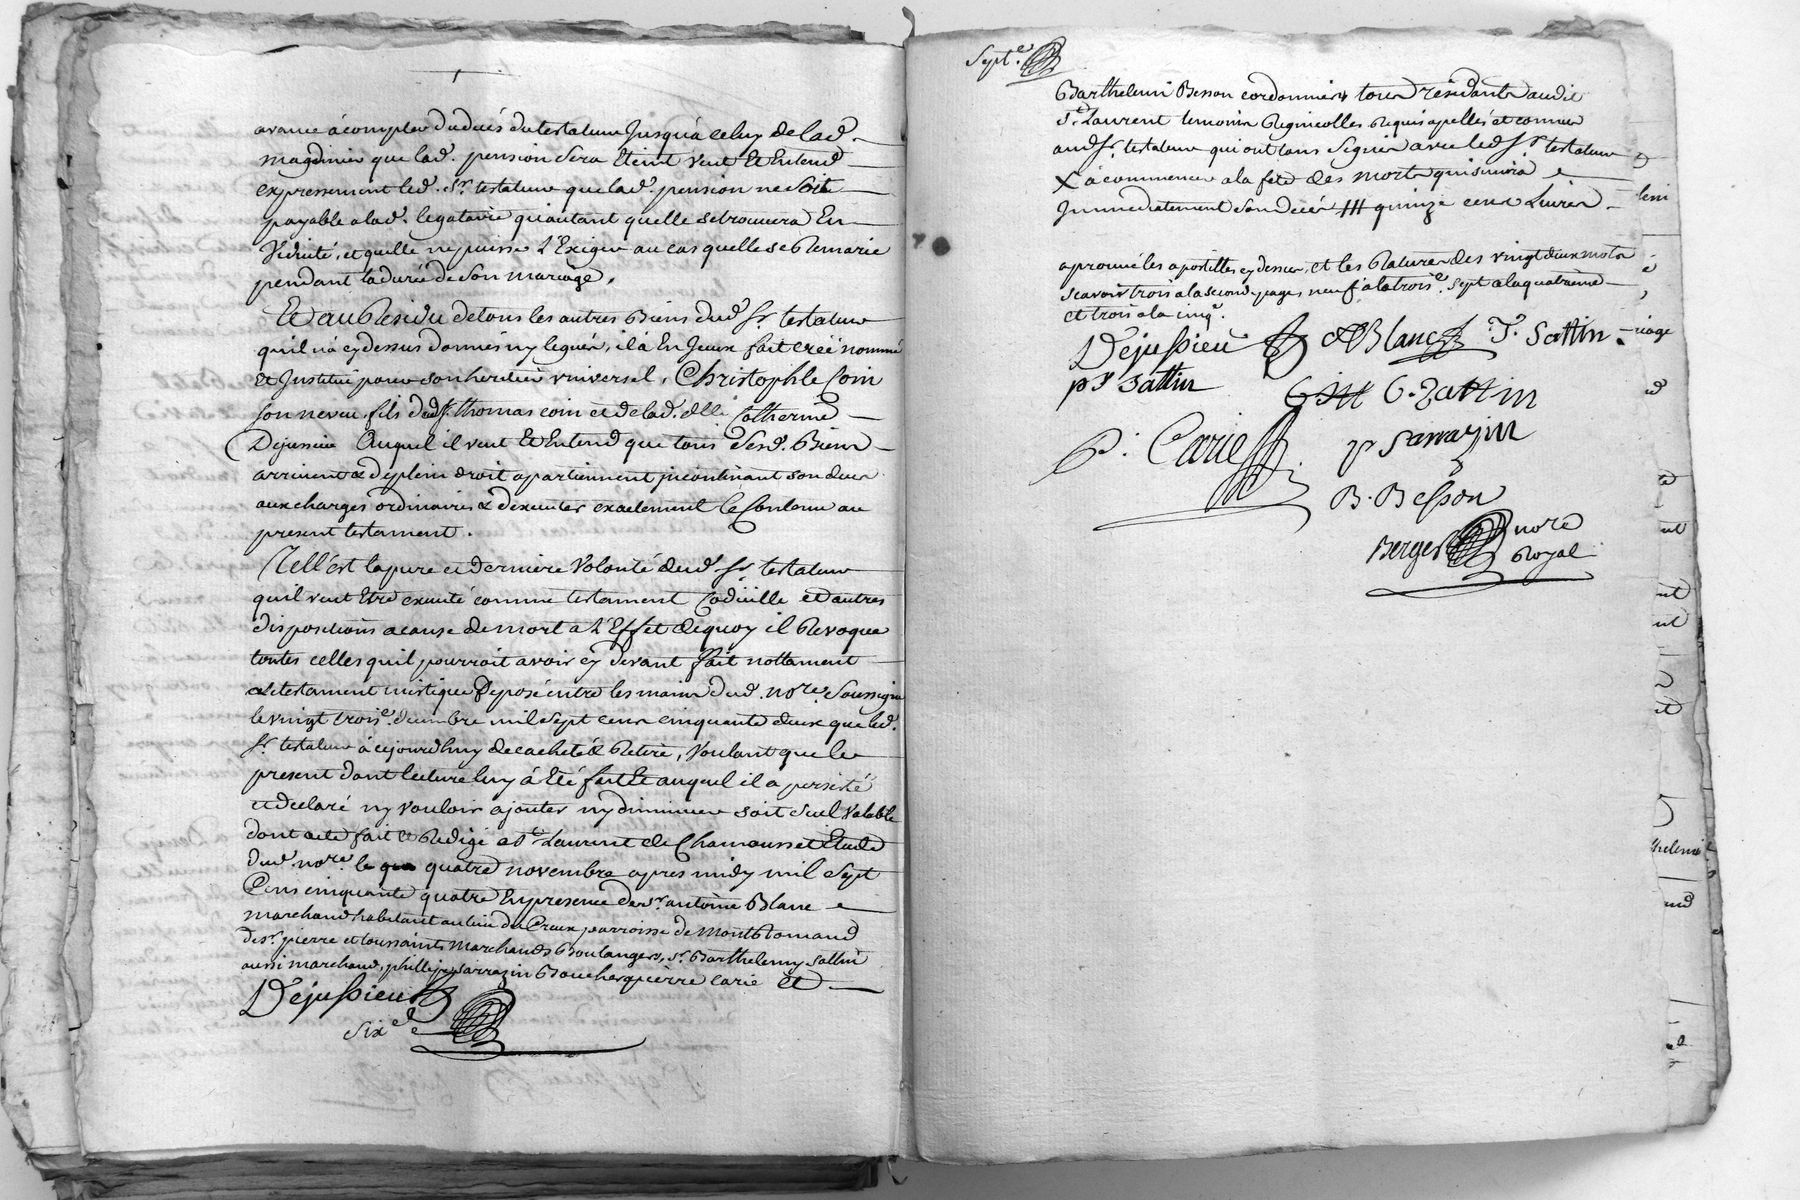 avance à compter du decés du testateur Jusqu'a celuy de lad.
magdinier que lad. pension sera Eteint veut Et Entend
expressement led. Sr. testateur que lad. pension ne soit
payable a lad. legataire qu'autant quelle se trouvera En
Viduité, et quelle ne puisse L'Exiger au cas quelle se Remarie
pendant la durée de son mariage,
Et au Residu de tous les autres Biens dud. Sr. testateur
quil n'a cy dessus donnés ny legués, il a En Iceux fait creé nommé
Et Institué pour son heritier universel, Christophle Coin
son neveu, fils dud. Sr. thomas coin et de lad. dlle Catherine
Dejussieu Auquel il veut Et Entend que tous sesd. Biens
arrivent & de plein droit apartiennent incontinant son deces
aux charges ordinaires & d'executer exactement le Contenu au
present testament.
Tell'est la pure et derniere Volonté dud. Sr. testateur
quil veut Etre executé comme testament Codicille et autres
dispositions a cause de mort a L'Effet dequoy il Revoque
toutes celles quil pourroit avoir cy devant fait nottament
le testament mistique Deposé entre les mains dud. nore. Soussigné
le vingt troise. decembre mil sept cens cinquante deux que led.
Sr. testateur à cejourdhuy decacheté & Retiré, Voulant que le
present dont lecture luy à Eté fait Et auquel il a persisté
et declaré ny vouloir ajouter ny diminuer soit seul Valable
dont acte fait et Redigé a St. Laurent de Chamousset Etude
dud. nore. le quatre novembre apres midy mil sept
Cens cinquante quatre En presence de sr. antoine Blanc
marchand habitant au lieu du Creux parroisse de Montromand
de sr. pierre et toussaints Marchands Boulangers, sr. Barthelemy Sattin
aussi marchand, phillipe sarrazin Boucher, pierre carie et
Dejussieu
Sixe
Septe.
Barthelemi Besson cordonnier tous residants audit
St. Laurent temoins Regnicolles Requis apellés et connus
aud Sr. testateur qui ont tous Signés avec led Sr. testateur
X à commencer a la fete des morts qui suivra
Immediatement son decés /// quinze cens Livres
aprouvé les apostilles cy dessus, et les Ratures des vingt deux mots
scavoir trois a la second. pages neuf a la troise. sept a la quatrieme
et trois a la cinqe.
Dejussieu A Blanc T. Sattin
pr Sattin B. Sattin
P. Carie p Sarrazin
B. Besson
Berger nore
Royal